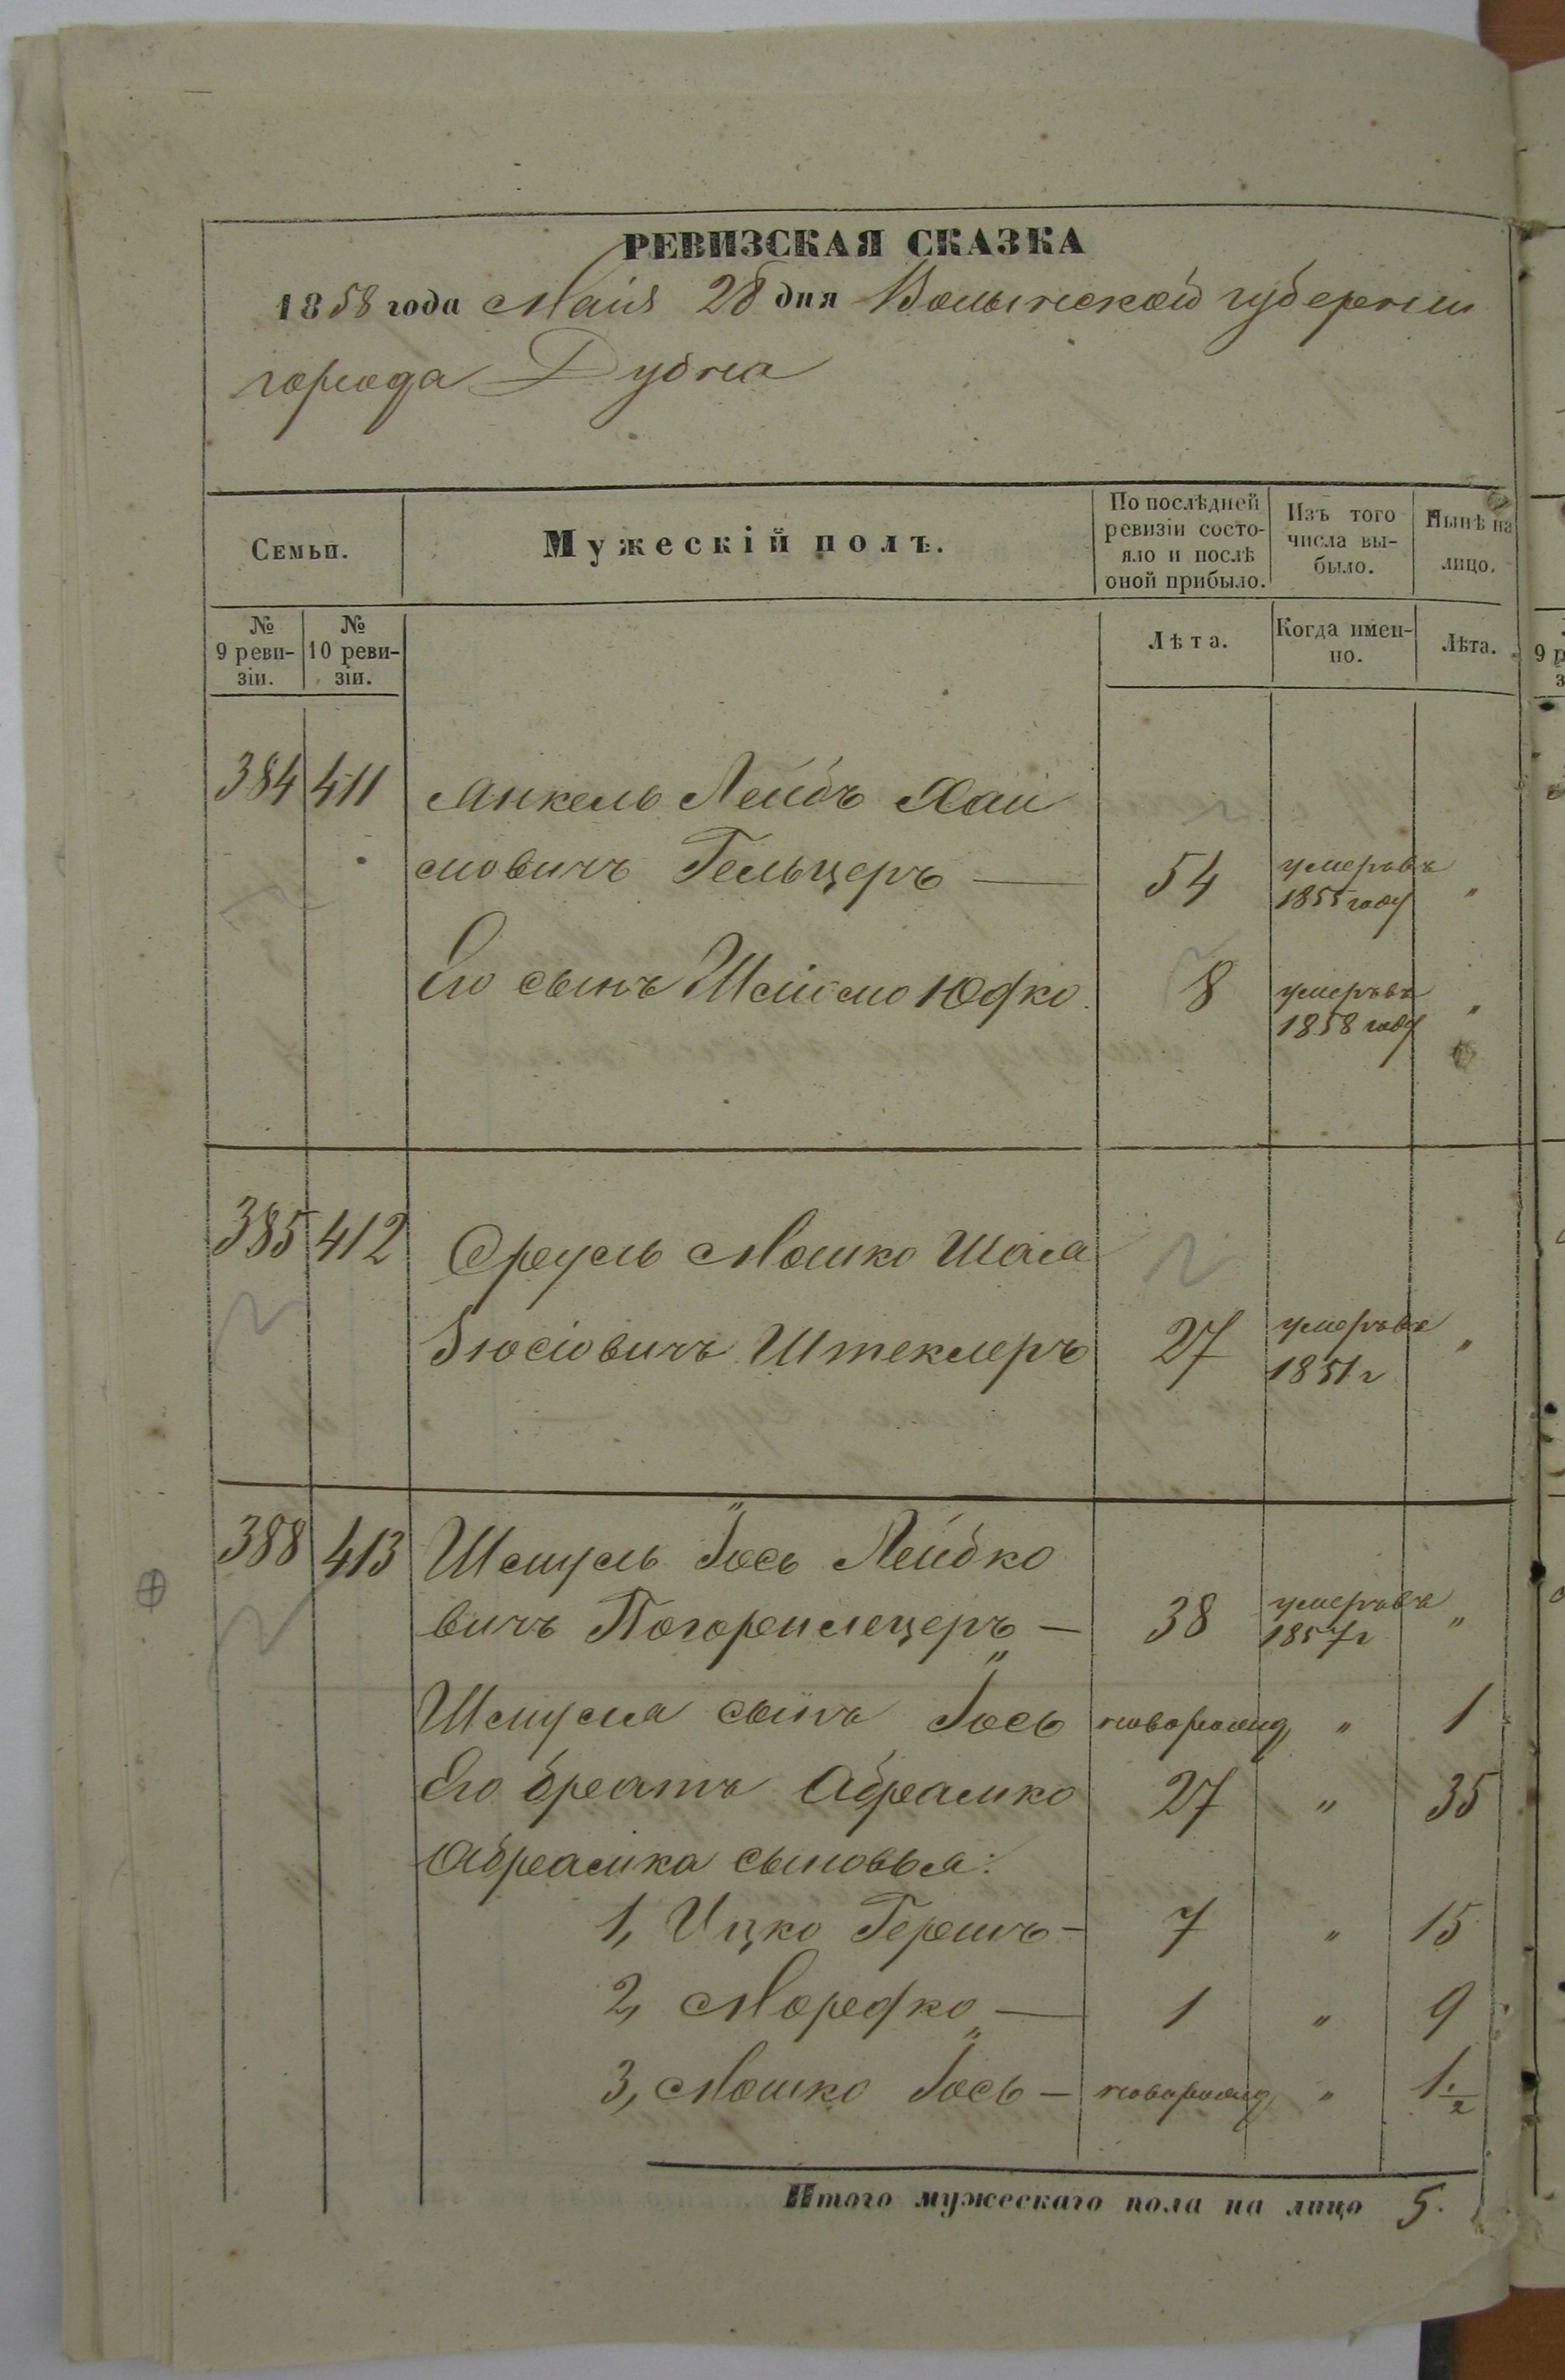 РЕВИЗСКАЯ СКАЗКА
1858 года Маія 28 дня Волынской губерніи
города Дубна
Семьи.
Мужескій полъ.
По послѣдней ревизіи состо-
яло и послѣ оной прибыло.
Изъ того числа вы-
было.
Нынѣ на лицо.
№ 9 реви-
зіи.
№ 10 реви-
зіи.
Лѣта.
Когда имен-
но.
Лѣта.
384 411 Анкель Лейбъ Хаи
мовичъ Гельцеръ — 54 умеръ въ 1855 году "
Его сынъ Шліомо Юдко 8 умеръ въ 1858 году "
385 412 Сруль Мошко Шая
Зюсіовичъ Штеклеръ 27 умеръ въ 1851 г "
388 413 Шмуль Іось Лейбко
вичъ Погорельцеръ — 38 умеръ въ 1857 г "
Шмуля сынъ Іось новорожд " 1
Его братъ Абрамко 27 " 35
Абрамка сыновья:
1, Ицко Гершъ — 7 " 15
2, Мордко — 1 " 9
3, Мошко Іось — новорожд " 1 1/2
Итого мужескаго пола на лицо 5.